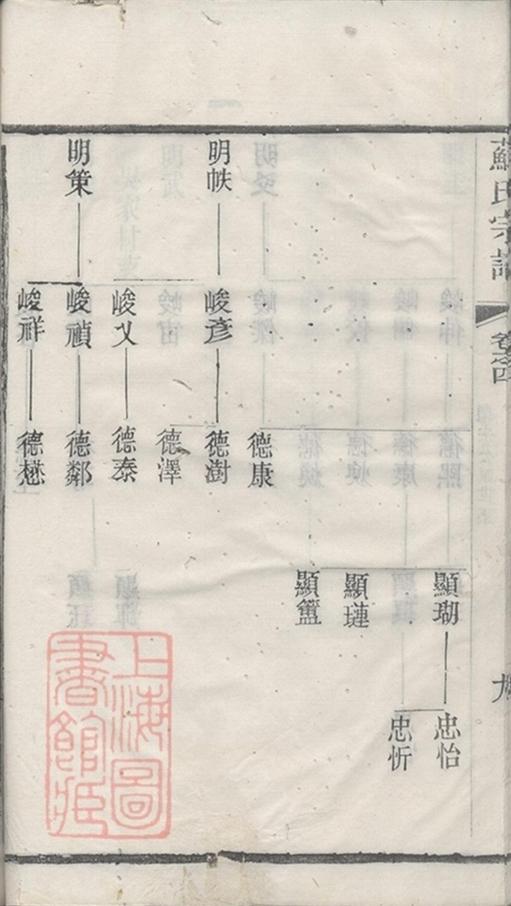 蘇氏宗譜
卷之四
九
顯瑚
忠怡
忠忻
顯璉
顯簠
德康
明帙
峻彥
德澍
德澤
峻乂
德泰
明策
峻禎
德鄰
峻祥
德懋
上海圖書館藏